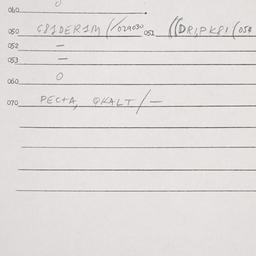 040
050 G81DER1M (/029030 051 ((DR1PK81 (054
052 —
053 —
060 0
070 PECTA, QKALT/—